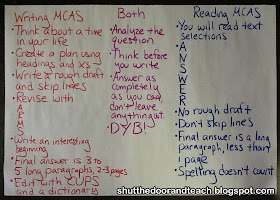 Writing MCAS
• Think about a time
in your life
• Create a plan using
headings and xs
• Write a rough draft
and skip lines
• Revise with
A
R
M
S
• Write an interesting
beginning
• Final answer is 3 to
5 long paragraphs, 2-3 pages
• Edit with CUPS
and a dictionary
Both
• Analyze the
question
• Think before
you write
• Answer as
completely
as you can,
don't leave
anything out.
• DYB!
Reading MCAS
• You will read text
selections
• A
N
S
W
E
R
• No rough draft
• Don't skip lines
• Final answer is a long
paragraph, less than
1 page
• Spelling doesn't count
shutthedoorandteach.blogspot.com